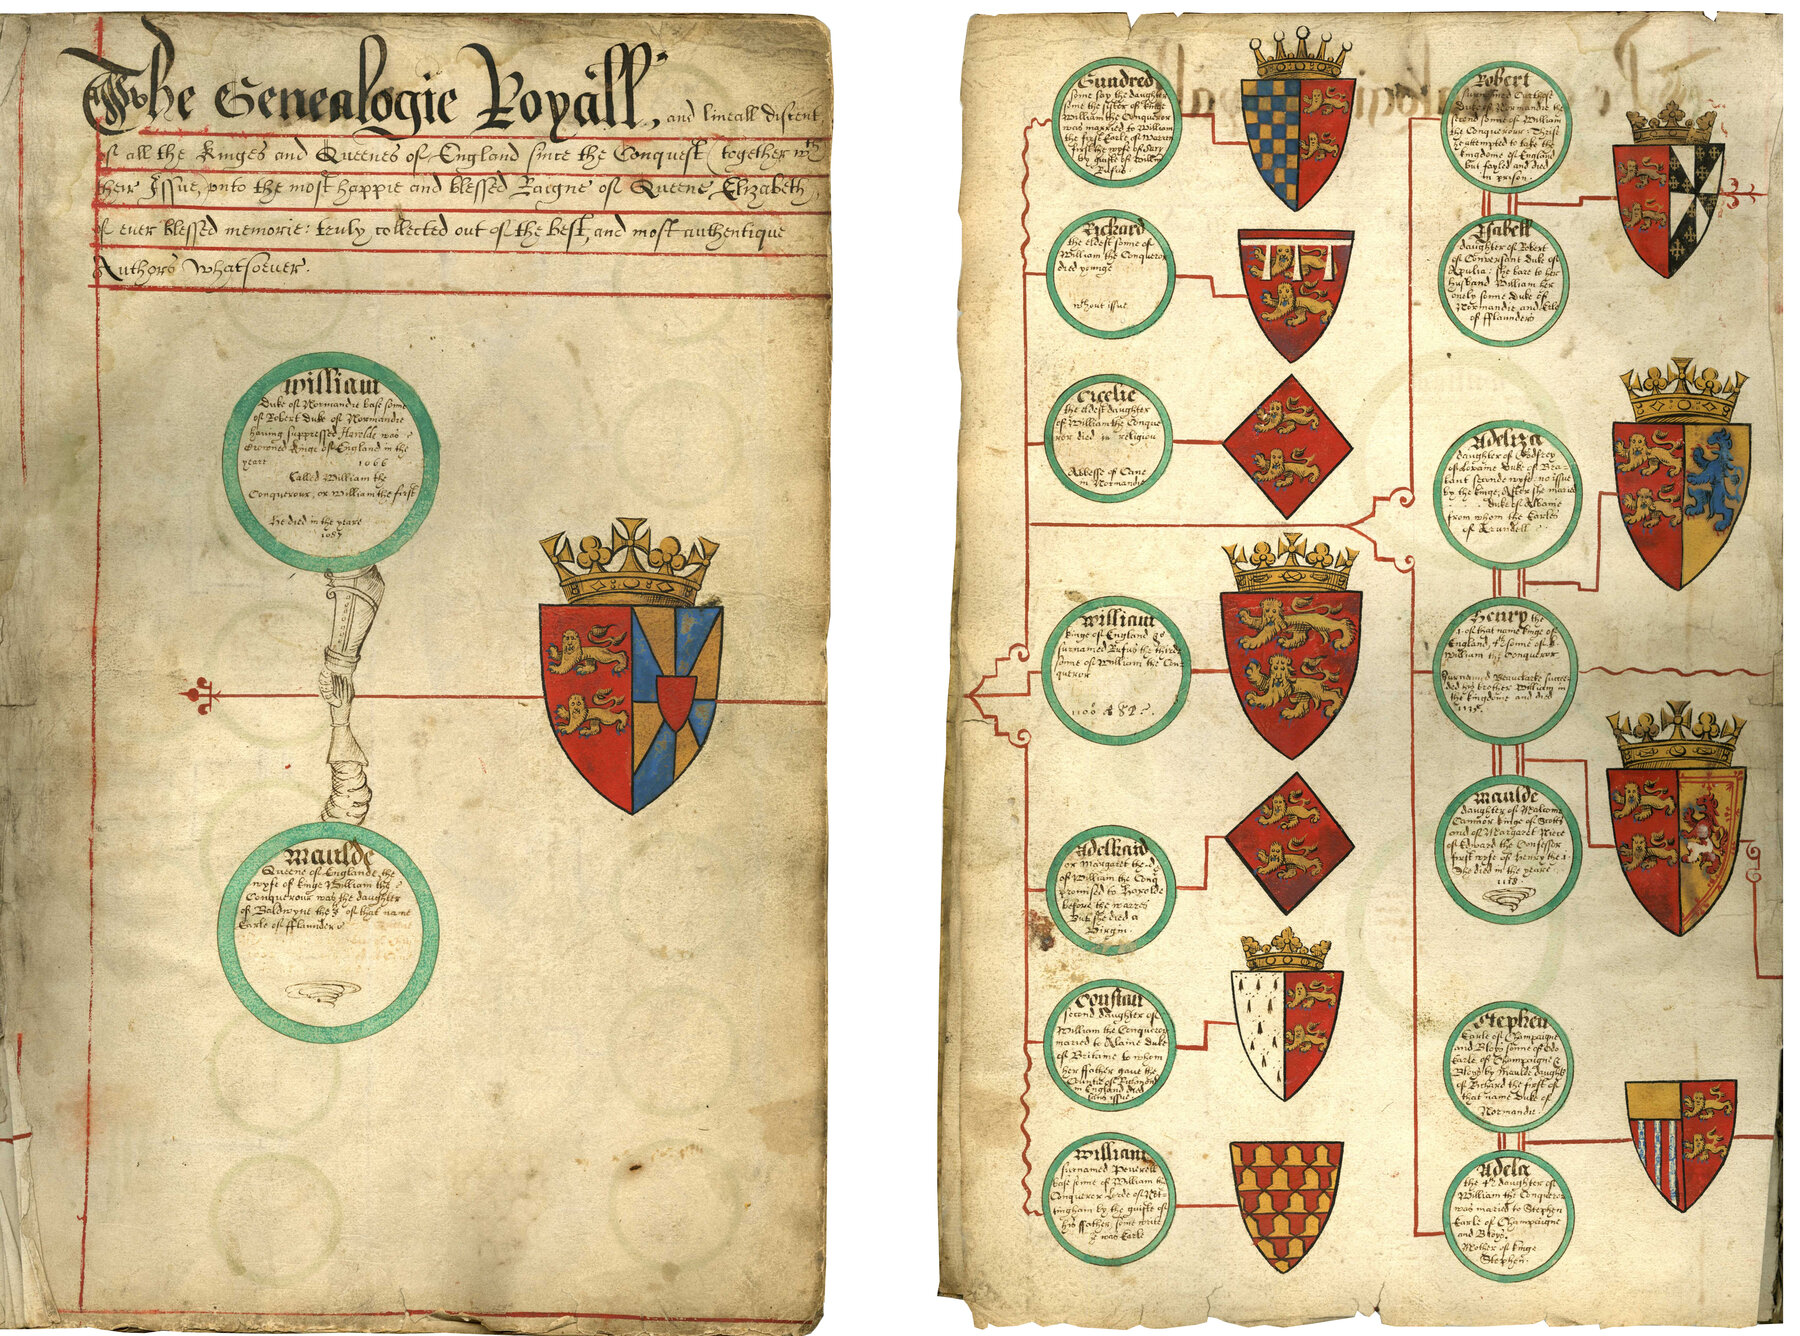 The Genealogie Royall, and lineall discent
of all the Kinges and Queenes of England since the Conquest (together wth
their Issue, vnto the most happie and blessed Raigne of Queene Elizabeth,
of ever blessed memorie: truly collected out of the best, and most authentique
Authors whatsoever.
William
Duke of Normandie base sonne
of Robert Duke of Normandie
having suppressed Harolde was
Crowned Kinge of England in the
yeare 1066
Called William the
Conquerour, or William the first
He died in the yeare
1087
Maulde
Queene of Englande, the
wyfe of kinge William the
Conquerour was the daughter
of Baldwyne the 5 of that name
Earle of fflaunders
Gundred
some say the daughter
some the sister of kinge
William the Conquerour
was married to William
the first Earle of Warren
first the wyfe of
by guift of Willm
Rufus
Richard
the eldest sonne of
William the Conqueror
died younge
wthout issue
Cicelie
the eldest daughter
of William the Conque
ror died in religion
Abbesse of Cane
in Normandie
William
kinge of England &
surnamed Rufus the third
sonne of William the Con-
queror
1100
Adelizaid
or Margaret the d.
of William the Conq
promised to Harolde
before the warres
But she died a
Virgin.
Constan
second daughter of
William the Conqueror
maried to Alaine Duke
of Britaine to whom
her ffather gave the
Countie of Richmond
in England died
sans issue
William
surnamed Peverell
base sonne of William the
Conqueror Lorde of Not-
tingham by the guifte of
his ffather, some write
he was Earle
Robert
surnamed Curthose
Duke of Normandie the
second sonne of William
the Conquerour. Thrise
he attempted to take the
kingdome of England
but fayled and died
in prison.
Isabell
daughter of Robert
of Conversant Duke of
Apulia: she bare to her
husband William her
onely sonne Duke of
Normandie and Erle
of fflaunders
Adeliza
daughter of Godfrey
of Loraine Duke of Bra-
bant seconde wyfe. no issue
by the kinge, After she maried
Duke of Albanie
from whom the Earles
of Arundell
Henry the
1. of that name kinge of
England, 4th sonne of K.
William the Conqueror
Surnamed Beauclarke succee-
ded his brother William in
the kingdome and died
1135.
Maulde
daughter of Malcome
Canmor kinge of Scotts
and of Margaret Niece
of Edward the Confessor
first wyfe of Henry the 1.
She died in the yeare
1118.
Stephen
Earle of Champaigne
and Bloys sonne of Odo
Earle of Champaigne &
Bloys by Maulde daught
of Richard the first of
that name Duke of
Normandie
Adela
the 4th daughter of
William the Conqueror
was maried to Stephen
Earle of Champaigne
and Bloys.
Mother of kinge
Stephen.